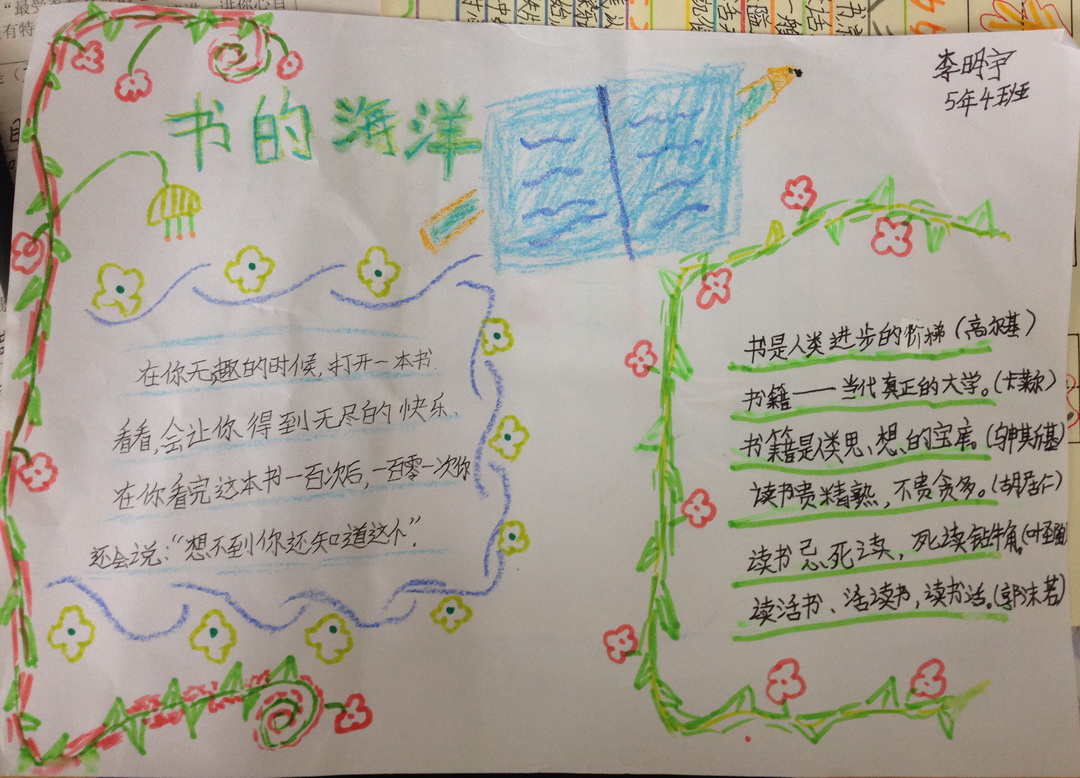 书的海洋
李明宇
5年4班
在你无趣的时候,打开一本书
看看,会让你得到无尽的快乐.
在你看完这本书一百次后,一百零一次你
还会说:“想不到你还知道这个”.
书是人类进步的价梯(高尔基)
书籍——当代真正的大学。(卡莱尔)
书籍是人类思想的宝库。(乌申斯基)
读书贵精熟,不贵贪多。(胡居仁)
读书忌死读,死读钻牛角。(叶圣陶)
读活书、活读书,读书活。(郭沫若)